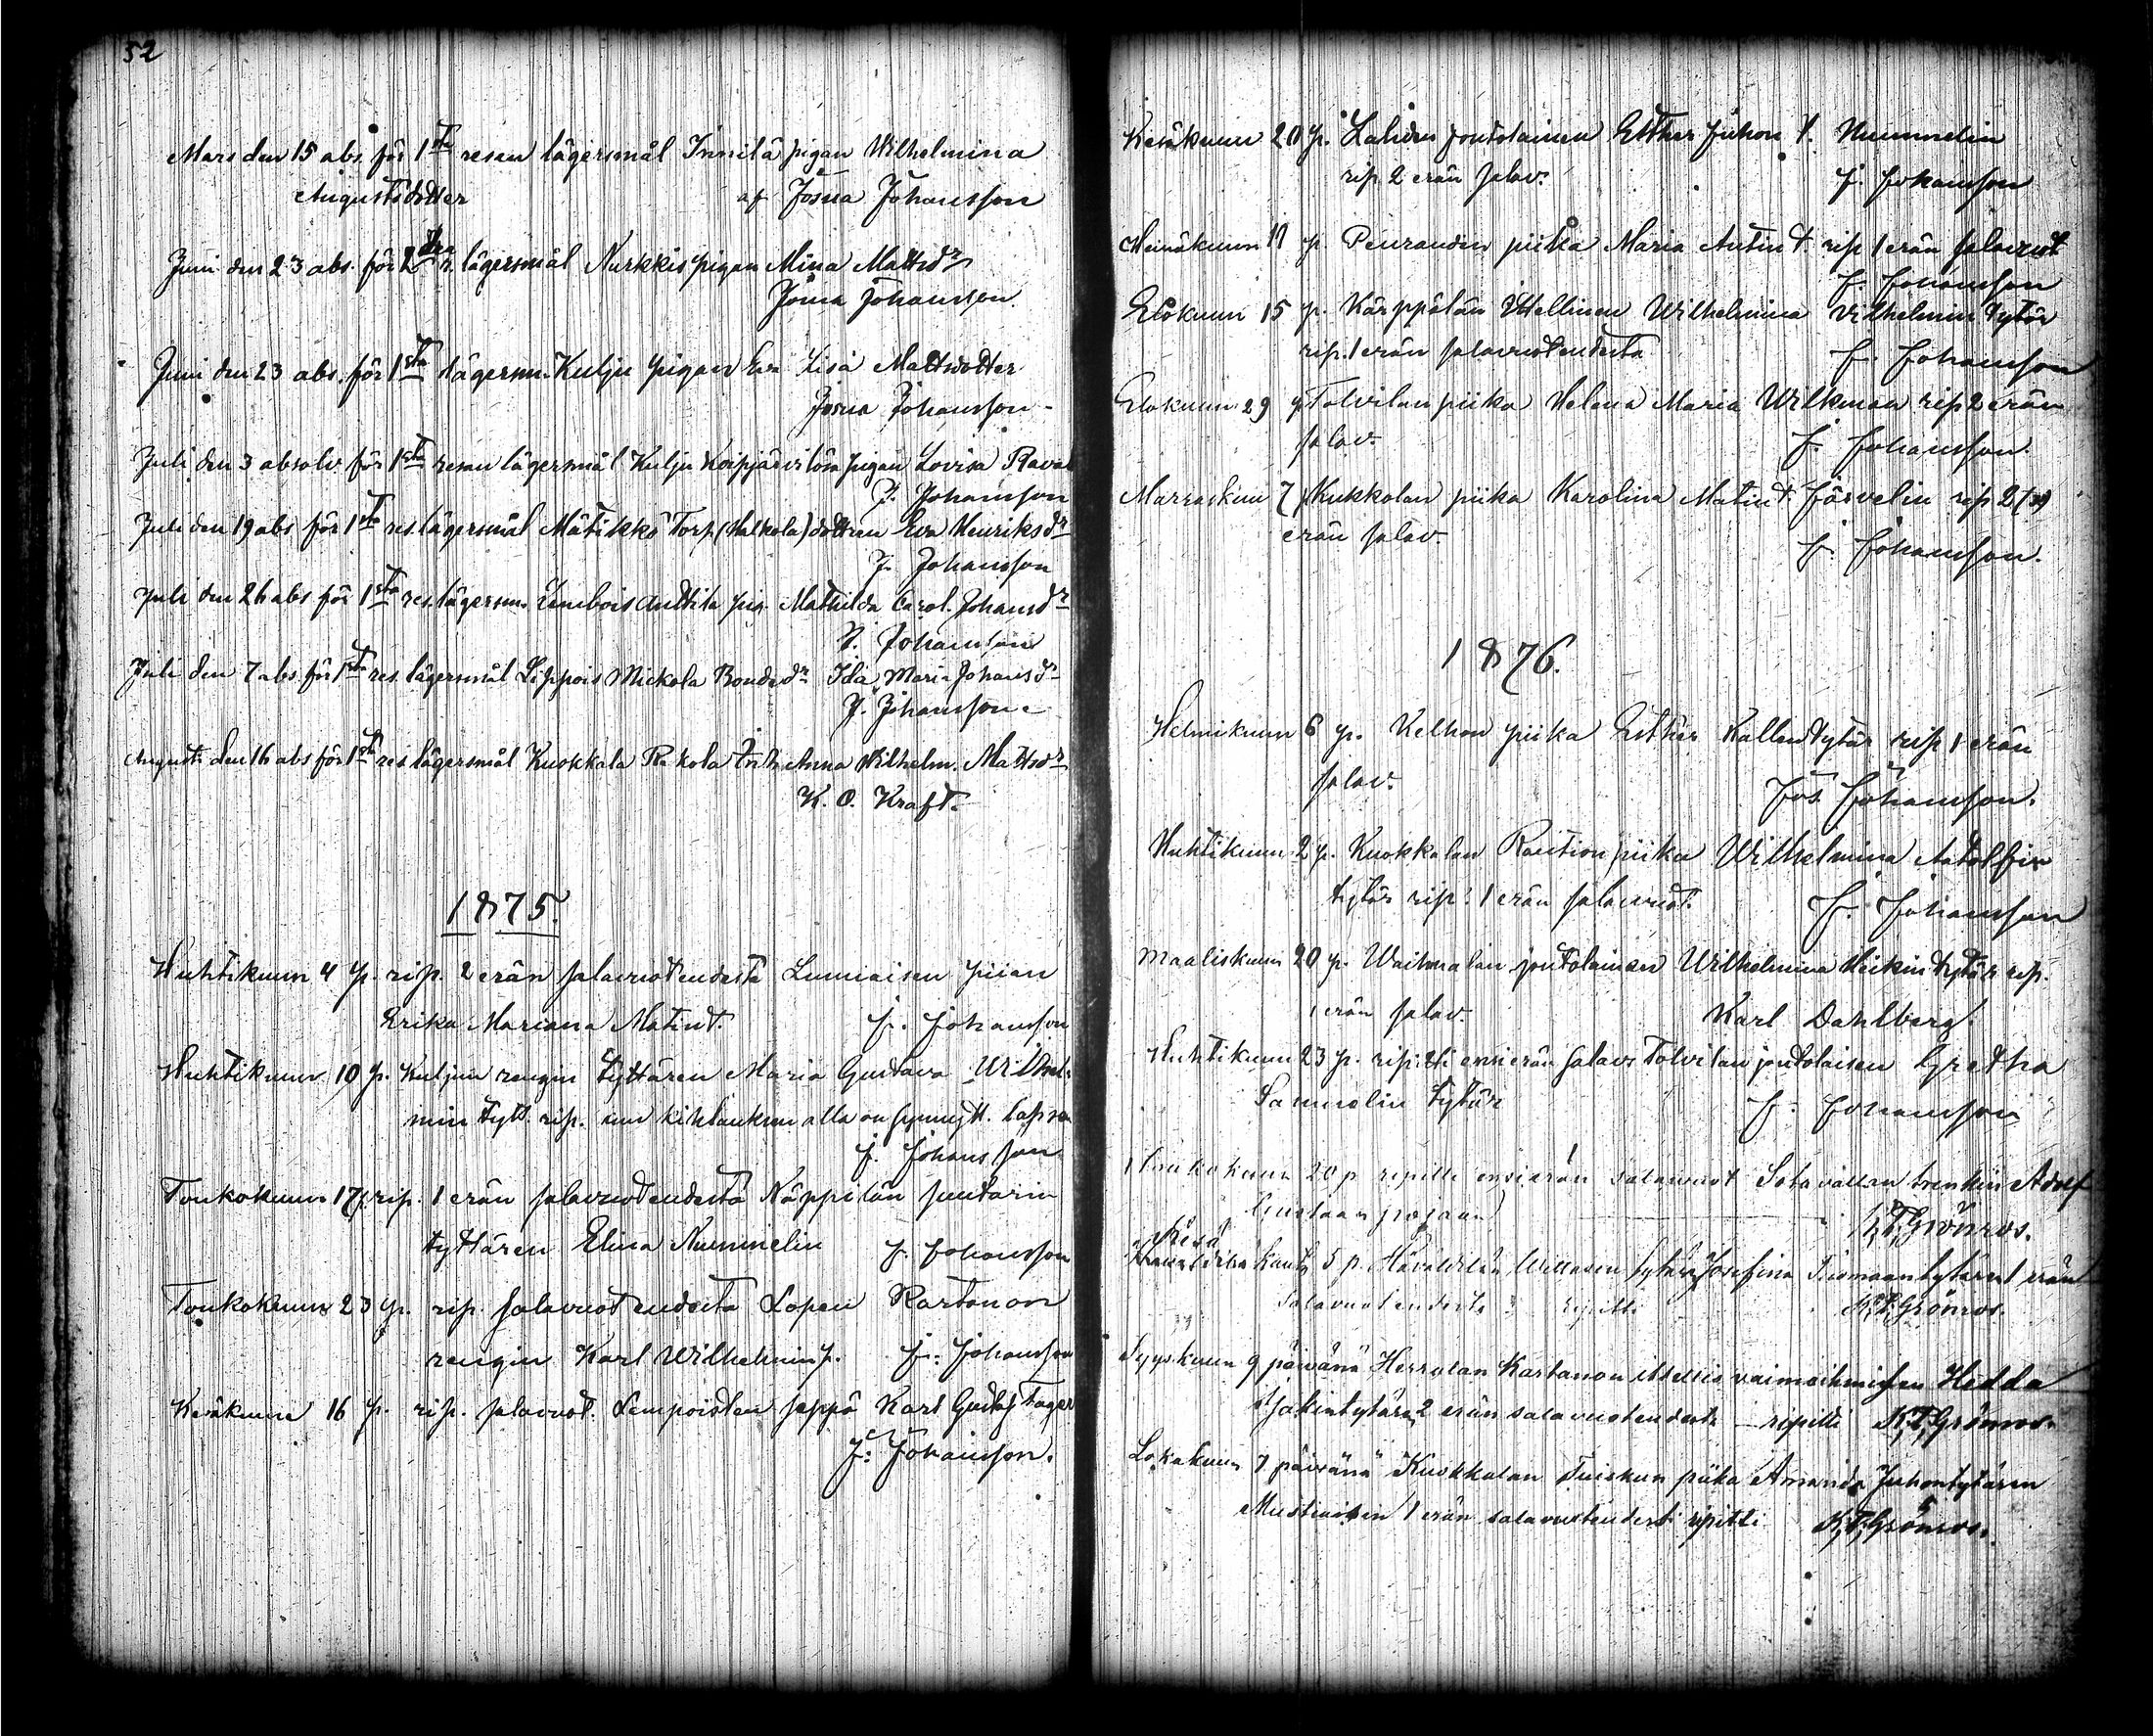 52
Mars den 15 abs. för 1sta resan lägersmål Innilä pigan Wilhelmina
Augustsdotter af Josua Johansson
Juni den 23 abs. för 2dra r. lägersmål Nurkkis pigan Mina Mattsdr
Josua Johansson
Juni den 23 abs. för 1sta lägersm. Kulju pigan Eva Lisa Mattsdotter
Josua Johansson
Juli den 3 absolv. för 1sta resan lägersmål Kulju Koipijärvi lösa pigan Lovisa
J. Johansson
Juli den 19 abs för 1sta res. lägersmål Mätikkö Torp (Halkola) dottren Eva Henriksdr
J. Johansson
Juli den 26 abs. för 1sta res. lägersm. Lembois Anttila pig. Mathilda Carol. Johansdr
J. Johansson
Juli den 7 abs. för 1sta res. lägersmål Lippois Mickola Bondedr Ida Maria Johansdr
J. Johansson
Augusti den 16 abs för 1sta res lägersmål Kuokkala Anna Wilhelm. Mattsdr
K. O. Kraft.
1875.
Huhtikuun 4 p. rip. 2 erän salavuoteudesta Lumiaisen piian
Erika Mariana Matint. J. Johansson
Huhtikuun 10 p. Kuljun rengin tyttären Maria Gustava Wilhel-
min tytt. rip. kihlauksen alla on synnytt. lapsen
J. Johansson
Toukokuun 17 p. rip. 1 erän salavuoteudesta Näppilän suutarin
tyttären Elina Nummelin J. Johansson
Toukokuun 23 p. rip. salavuoteudesta Lopen Kartanon
rengin Karl Wilhelmin p. J. Johansson
Kesäkuun 16 p. rip. salavuot. Lempoisten seppä Karl Gustaf Fager
J. Johansson.
Kesäkuun 20 p. Lahden joutolainen Esther Juhon t. Nummelin
rip. 2 erän salav. J. Johansson
Heinäkuun 11 p. Penrandin piika Maria Antin t. rip 1 erän salavuot
J. Johansson
Elokuun 15 p. Kärppälän itsellinen Wilhelmina Vilhelmin tytär
rip. 1 erän salavuoteudesta J. Johansson
Elokuun 29 p. Tolvilan piika Helena Maria Wilkman rip 2 erän
salav. J. Johansson.
Marraskuu 7 p. Kukkolan piika Karolina Matin t. Järvelin rip 2
erän salav. J. Johansson.
1876.
Helmikuun 6 p. Kelhon piika Esther Kallentytär rip 1 erän
salav. Jos. Johansson.
Huhtikuun 2 p. Kuokkalan Raition piika Wilhelmina Adolfin
tytär rip. 1 erän salavuot. J. Johansson
Maaliskuun 20 p. Waihmalan joutolainen Wilhelmina Heikin tytär rip.
1 erän salav. Karl Dahlberg.
Huhtikuun 23 p. ripitti ensi erän salav. Tolvilan joutolaisen Gretha
Samuelin tytär J. Johansson
Toukokuun 20 p ripitti ensierän salavuot Sotavallan trenkin Adolf
Gustaan pojaan K.T. Grönros.
Kesä kuun 5 p. Josefina Tuomaantytären 1 erän
salavuoteudesta ripitti K.T. Grönros.
Syyskuun 9 päivänä Herralan Kartanon itsellis vaimoihmisen Hedda
Isakintytären 2 erän salavuoteudesta ripitti K.T. Grönros.
Lokakuun 7 päivänä Kuokkalan Tuiskun piika Amanda Juhontytären
Mustiaisen 1 erän salavuoteudesti ripitti K.T. Grönros.